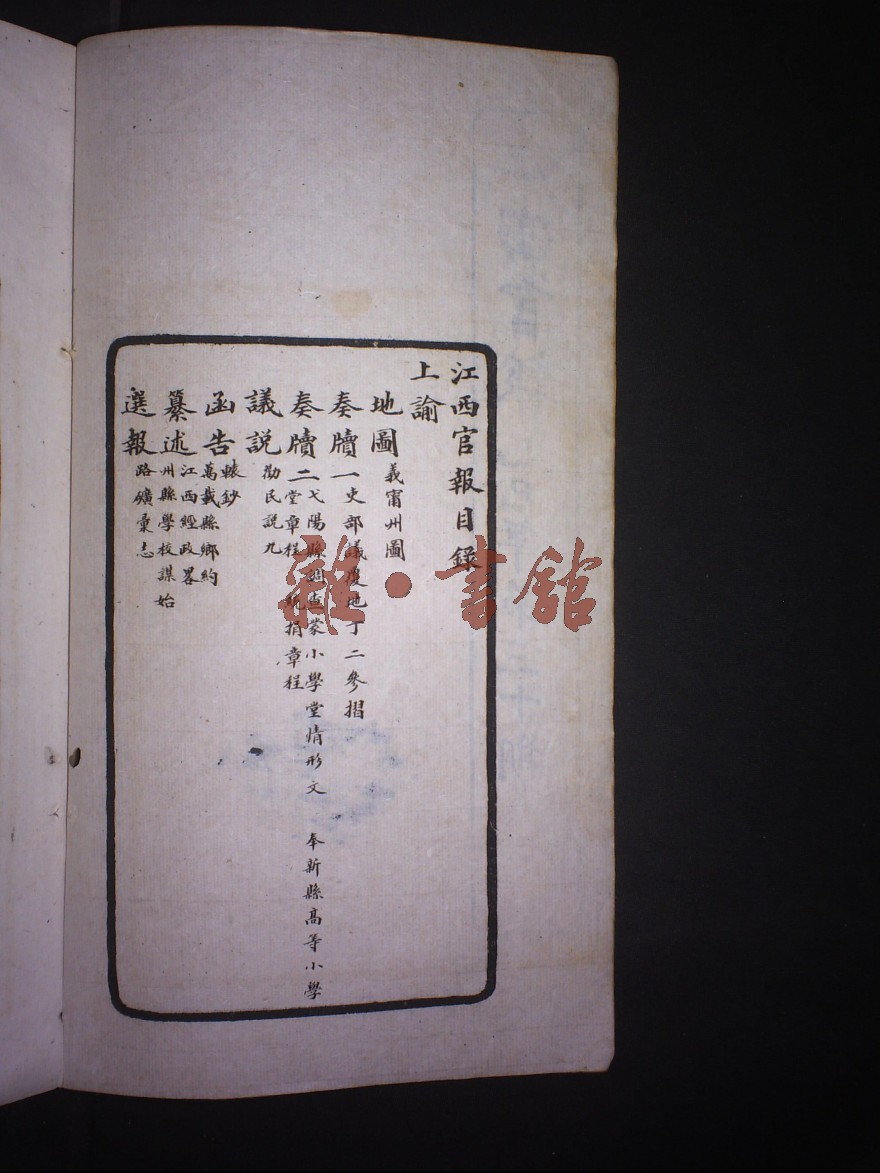 江西官報目錄
上諭
地圖 義甯州圖
奏牘一 吏部議覆地丁二參摺
奏牘二 弋陽縣調查蒙小學堂情形文 奉新縣高等小學
堂章程 統捐章程
議説 勸民説九
函告 轅鈔
萬載縣鄉約
纂述 江西經政畧
州縣學校謀始
選報 路礦彙志
雜·書館